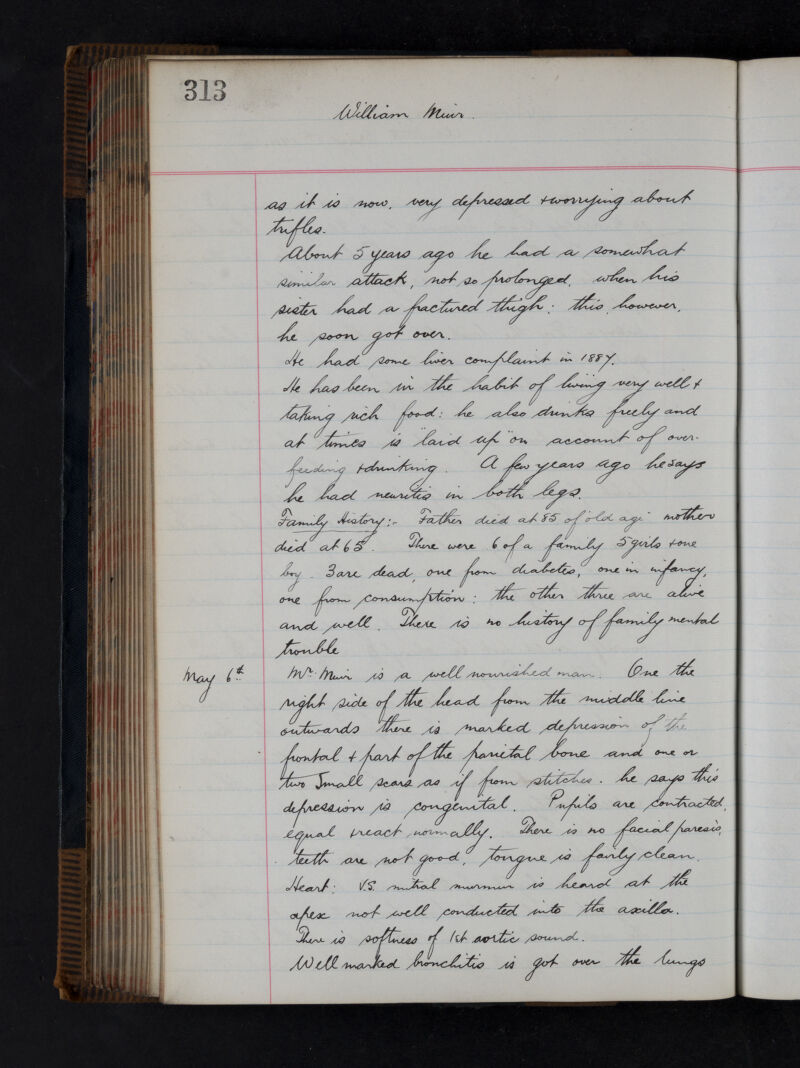 313
William Muir.
as it is now, very depressed & worrying about
trifles.
About 5 years ago he had a somewhat
similar attack, not so prolonged, when his
sister had a fractured thigh: this, however,
he soon got over.
He had some liver complaint in 1887.
He has been in the habit of living very well &
taking rich food: he also drinks freely and
at times is "laid up" on account of over-
feeding & drinking. A few years ago he says
he had neuritis in both legs.
Family History:- Father died at 85 of "old age" mother
died at 65. There were 6 of a family 5 girls & one
boy. 3 are dead, one from diabetes, one in infancy,
one from consumption: the other three are alive
and well. There is no history of family mental
trouble
May 6th. Mr. Muir is a well nourished man. One the
right side of the head from the middle line
outwards there is marked depression of the
frontal & part of the parietal bone and one or
two Small scars as if from stitches. he says this
depression is congenital. Pupils are contracted,
equal & react normally. There is no facial paresis,
teeth are not good, tongue is fairly clean.
Heart: V.S. mitral murmur is heard at the
apex not well conducted into the axilla.
There is softness of 1st aortic sound.
Well marked bronchitis is got over the lungs